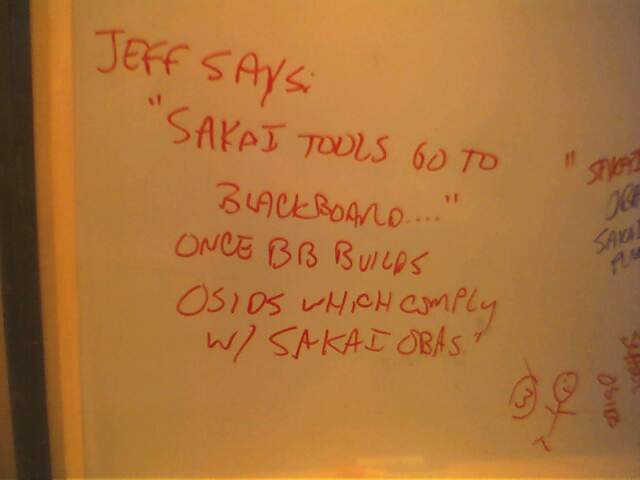 JEFF SAYS:
"SAKAI TOOLS GO TO
BLACKBOARD...."
ONCE BB BUILDS
OSIDS WHICH COMPLY
W/ SAKAI OBAS"
"SAKAI
SAKAI
OSIDS
3